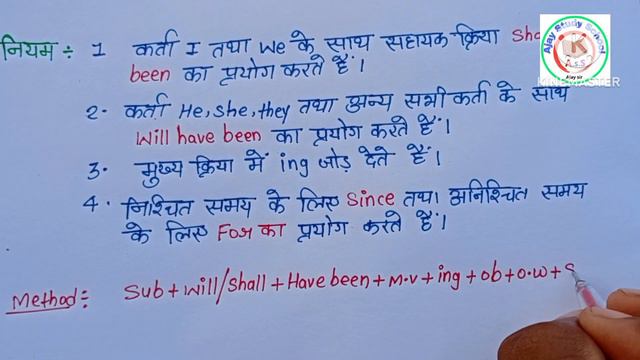 नियम ÷ 1 कर्ता I तथा We के साथ सहायक क्रिया
been का प्रयोग करते हैं।
2. कर्ता He, she, they तथा अन्य सभी कर्ता के साथ
Will have been का प्रयोग करते हैं।
3. मुख्य क्रिया में ing जोड़ देते हैं।
4. निश्चित समय के लिए Since तथा अनिश्चित समय
के लिए For का प्रयोग करते हैं।
Method÷ Sub + Will/Shall + Have been + M.V + ing + ob + O.W + S
Ajay Study School
K
A.S.S
Ajay sir
KINEMASTER